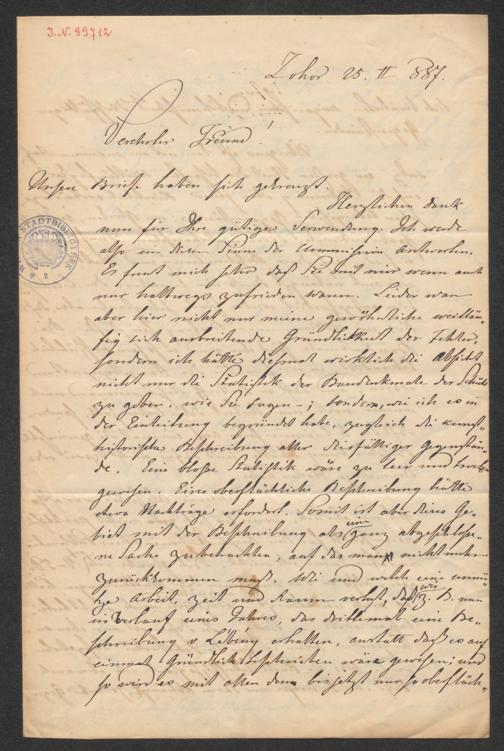 J. N. 99712
Zohor 25. II 887.
Verehrter Freund!
Unsere Briefe haben sich gekreuzt.
Herzlichen dank
nun für Ihre gütige Verwendung. Ich werde
also in diesem Sinne der Commission antworten.
Es freut mich sehr daß Sie mit mir wenn auch
nur halbwegs zufrieden waren. Leider war
aber hier nicht nur meine gewöhnliche weitläu-
fig sich ausbreitende Gründlichkeit der Fehler,
sondern ich hatte diesmal wirklich die Absicht
nicht nur die Statistik der Baudenkmale der Schütt
zu geben, wie Sie sagen –; sondern, wie ich es in
der Einleitung begründet habe, zugleich die kunst-
historische Beschreibung aller diesfälligen Gegenstän-
de. Eine bloße Statistik wäre zu leer und trocken
gewesen. Eine oberflächliche Beschreibung hätte
etwa Nachträge erfordert. Somit ist aber dieses Ge-
biet mit der Beschreibung als eine ganz abgeschlosse-
ne Sache zu betrachten, auf das man nicht mehr
zurückkommen muß. Wie und welch eine unnü-
tze Arbeit, Zeit und Raum verlust, daß wir z. B. nun
im Verlauf eines Jahres, das drittemal eine Be-
schreibung v. Lébeny erhalten, anstatt daß es auf
einmal Gründlich beschrieben wäre gewesen; und
so wird es mit allen den bis jetzt nur so oberfläch-
STADTBIBLIOTHEK